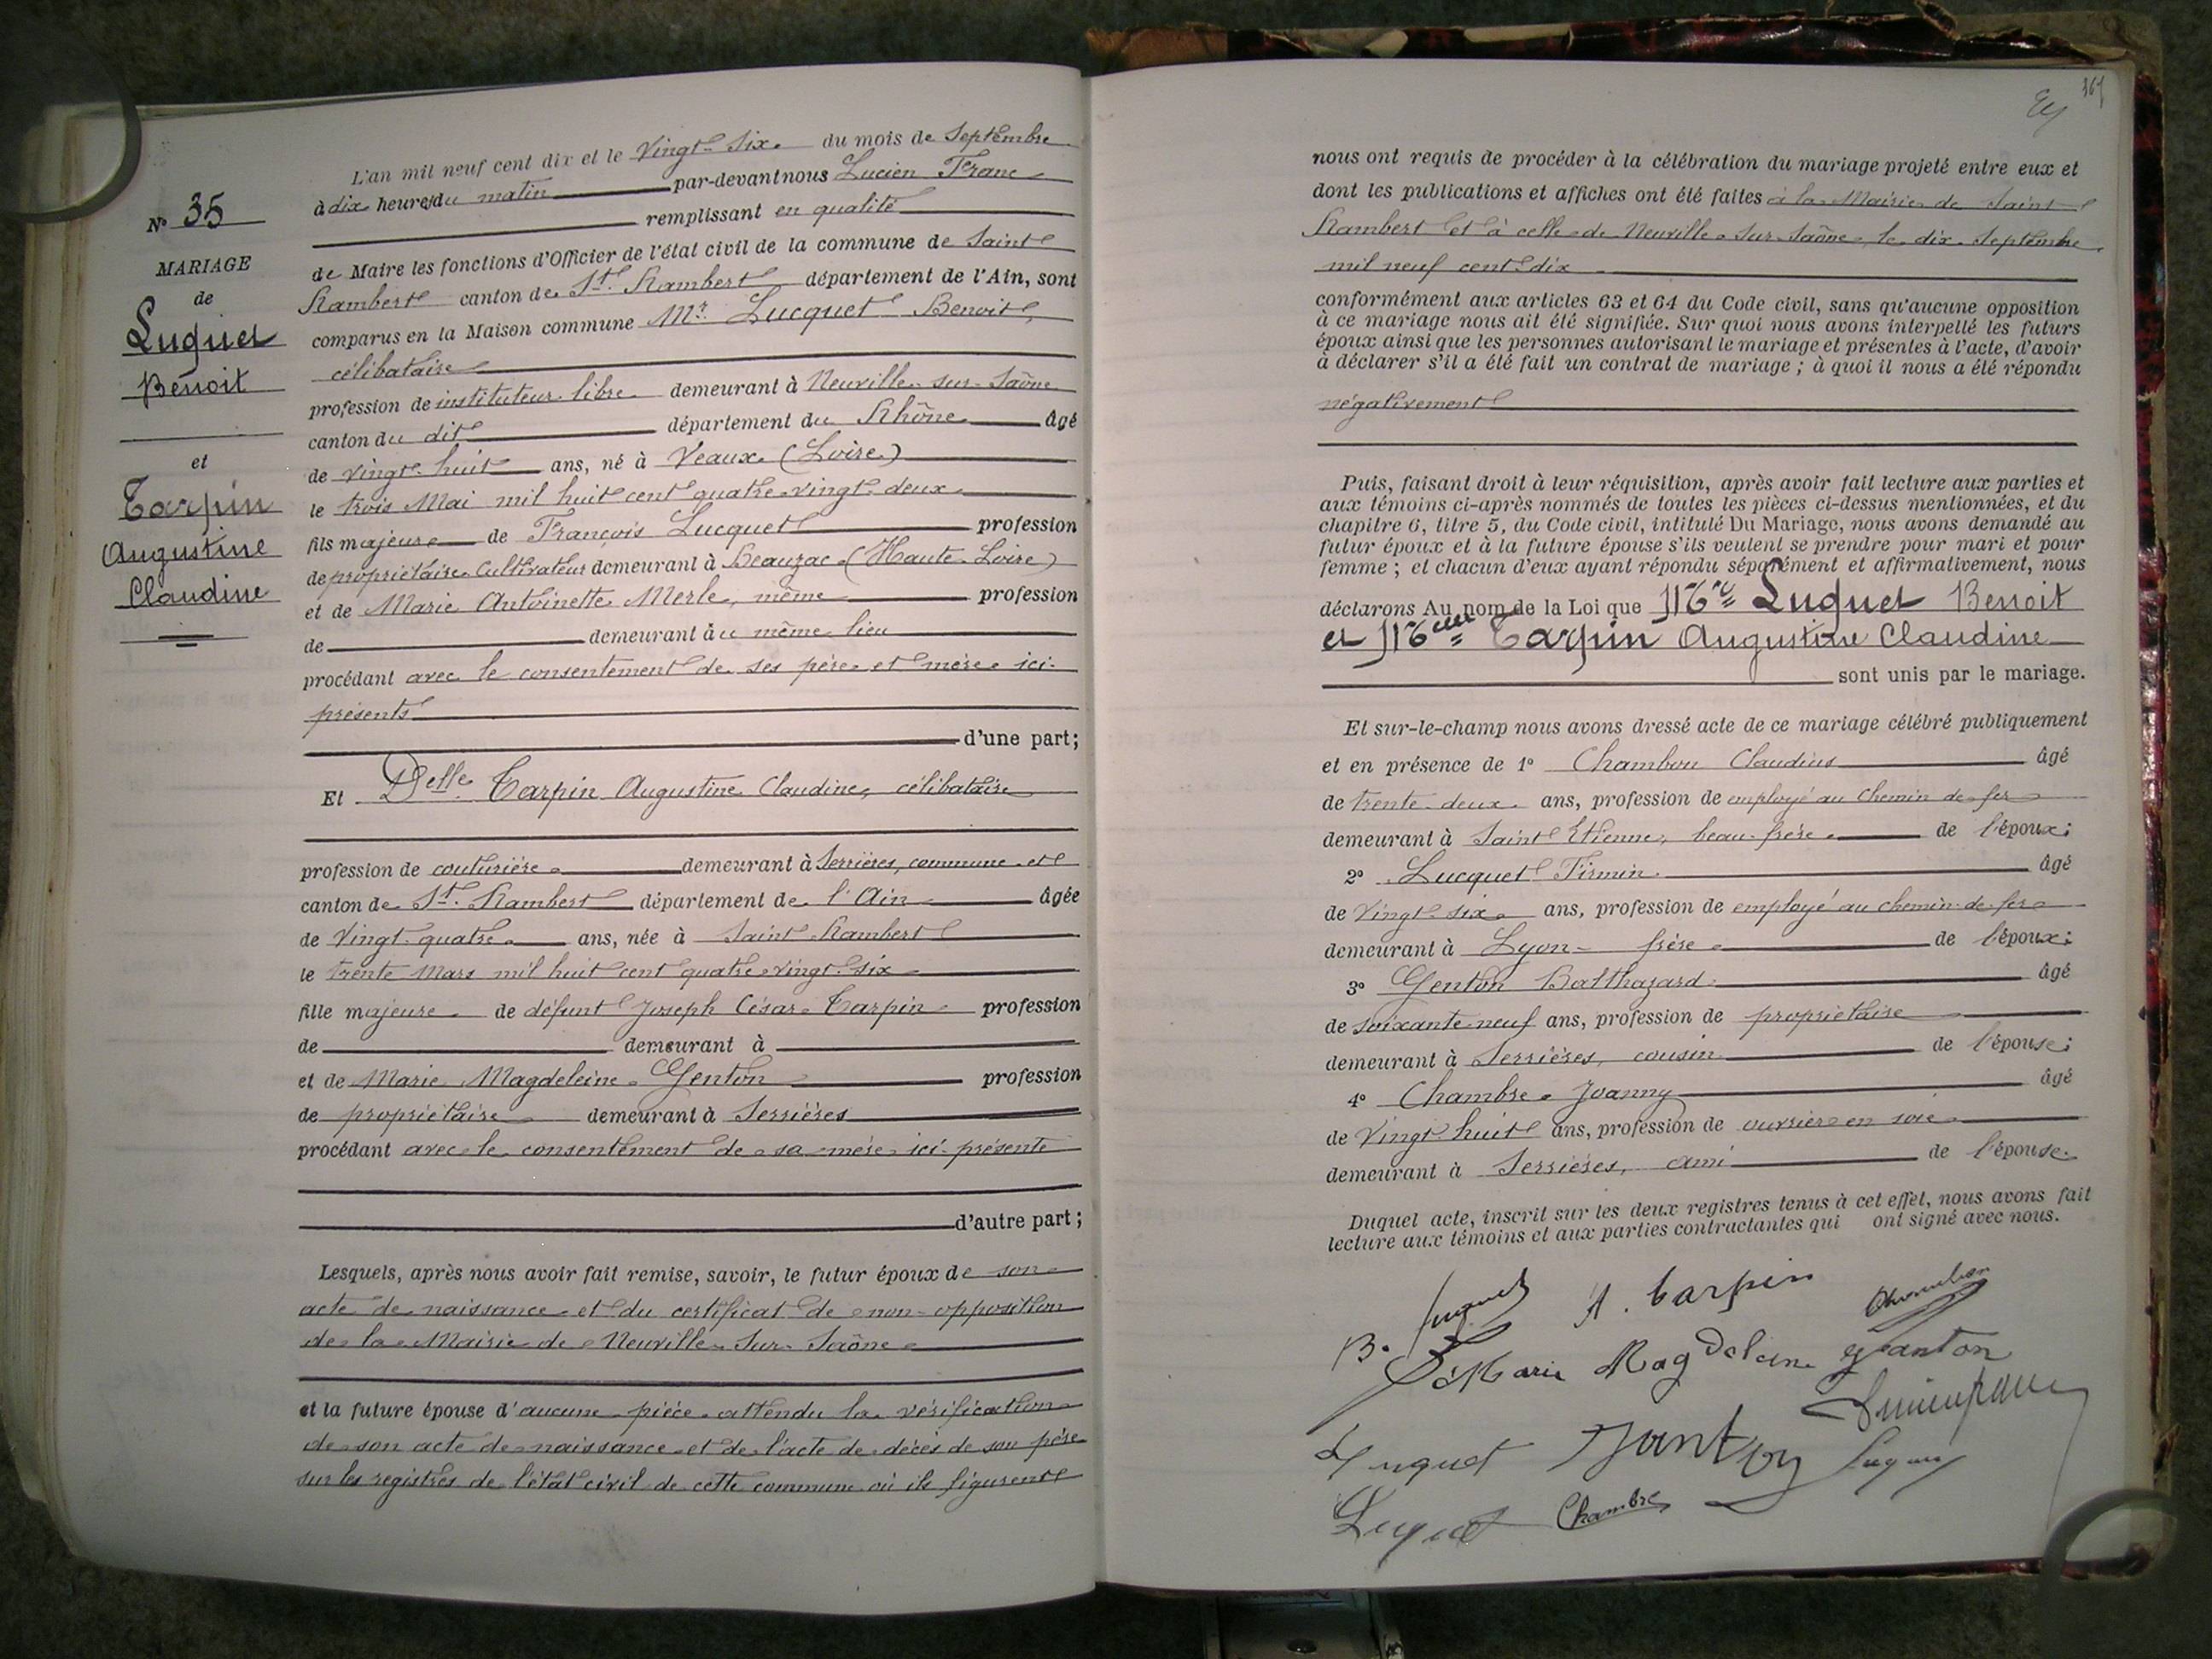 N° 35
MARIAGE
de
Luquet
Benoit
et
Tarpin
Augustine
Claudine
L'an mil neuf cent dix et le Vingt-six du mois de Septembre
à dix heures du matin par-devant nous Lucien Franc
remplissant en qualité
de Maire les fonctions d'Officier de l'état civil de la commune de Saint
Rambert canton de St. Rambert département de l'Ain, sont
comparus en la Maison commune Mr. Lucquet Benoit,
célibataire
profession de instituteur libre demeurant à Neuville-sur-Saône
canton du dit département du Rhône âgé
de vingt-huit ans, né à Veaux (Loire)
le trois Mai mil huit cent quatre-vingt-deux
fils majeur de François Lucquet profession
de propriétaire Cultivateur demeurant à Beauzac (Haute-Loire)
et de Marie Antoinette Merle, même profession
de demeurant au même lieu
procédant avec le consentement de ses père et mère ici-
présents
d'une part;
Et Delle Tarpin Augustine Claudine, célibataire
profession de couturière demeurant à Serrières, commune et
canton de St. Rambert département de l'Ain âgée
de Vingt-quatre ans, née à Saint Rambert
le trente Mars mil huit cent quatre-vingt-six
fille majeure de défunt Joseph César Tarpin profession
de demeurant à
et de Marie Magdeleine Genton profession
de propriétaire demeurant à Serrières
procédant avec le consentement de sa mère ici-présente
d'autre part;
Lesquels, après nous avoir fait remise, savoir, le futur époux de son
acte de naissance et du certificat de non-opposition
de la Mairie de Neuville-Sur-Saône
et la future épouse d'aucune pièce attendu la vérification
de son acte de naissance et de l'acte de décès de son père
sur les registres de l'état civil de cette commune où ils figurent
nous ont requis de procéder à la célébration du mariage projeté entre eux et
dont les publications et affiches ont été faites à la Mairie de Saint
Rambert et à celle de Neuville-Sur-Saône, le dix Septembre
mil neuf cent dix
conformément aux articles 63 et 64 du Code civil, sans qu'aucune opposition
à ce mariage nous ait été signifiée. Sur quoi nous avons interpellé les futurs
époux ainsi que les personnes autorisant le mariage et présentes à l'acte, d'avoir
à déclarer s'il a été fait un contrat de mariage ; à quoi il nous a été répondu
négativement
Puis, faisant droit à leur réquisition, après avoir fait lecture aux parties et
aux témoins ci-après nommés de toutes les pièces ci-dessus mentionnées, et du
chapitre 6, titre 5, du Code civil, intitulé Du Mariage, nous avons demandé au
futur époux et à la future épouse s'ils veulent se prendre pour mari et pour
femme ; et chacun d'eux ayant répondu séparément et affirmativement, nous
déclarons Au nom de la Loi que Mr Luquet Benoit
et Melle Tarpin Augustine Claudine
sont unis par le mariage.
Et sur-le-champ nous avons dressé acte de ce mariage célébré publiquement
et en présence de 1° Chambon Claudius âgé
de trente-deux ans, profession de employé au chemin de fer
demeurant à Saint Etienne, beau-frère de l'époux;
2° Lucquet Firmin âgé
de Vingt-six ans, profession de employé au chemin de fer
demeurant à Lyon - frère de l'époux;
3° Genton Balthazard âgé
de soixante-neuf ans, profession de propriétaire
demeurant à Serrières, cousin de l'épouse;
4° Chambre Joanny âgé
de Vingt-huit ans, profession de ouvrier en soie
demeurant à Serrières, ami de l'épouse.
Duquel acte, inscrit sur les deux registres tenus à cet effet, nous avons fait
lecture aux témoins et aux parties contractantes qui ont signé avec nous.
B. Luquet A. Tarpin Chambon
Marie Magdeleine Janton
Luquet Janton Luquet
Luquet Chambre